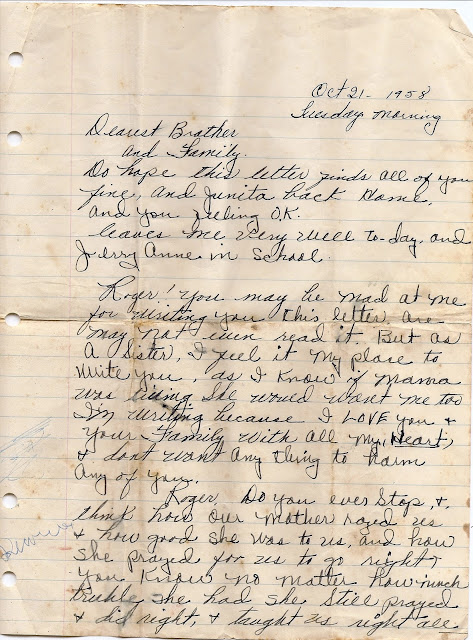 Oct 21 - 1958
Tuesday morning
Dearest Brother
and Family.
Do hope this letter finds all of you
fine, and Junita back Home,
and you feeling O.K.
leaves me very well to-day, and
Jerry Anne in School.
Roger! You may be mad at me
for writing you this letter, are
may not even read it. But as
A Sister, I feel it my place to
write you, as I know if Mama
was living she would want me too
I'm writing because I LOVE you &
your Family with all my Heart,
& dont want any thing to harm
any of you.
Roger, Do you ever stop, &
think how our Mother loved us
& how good she was to us, and how
she prayed for us to go right,
you know no matter how much
truble she had she still prayed
& did right, & taught us right all